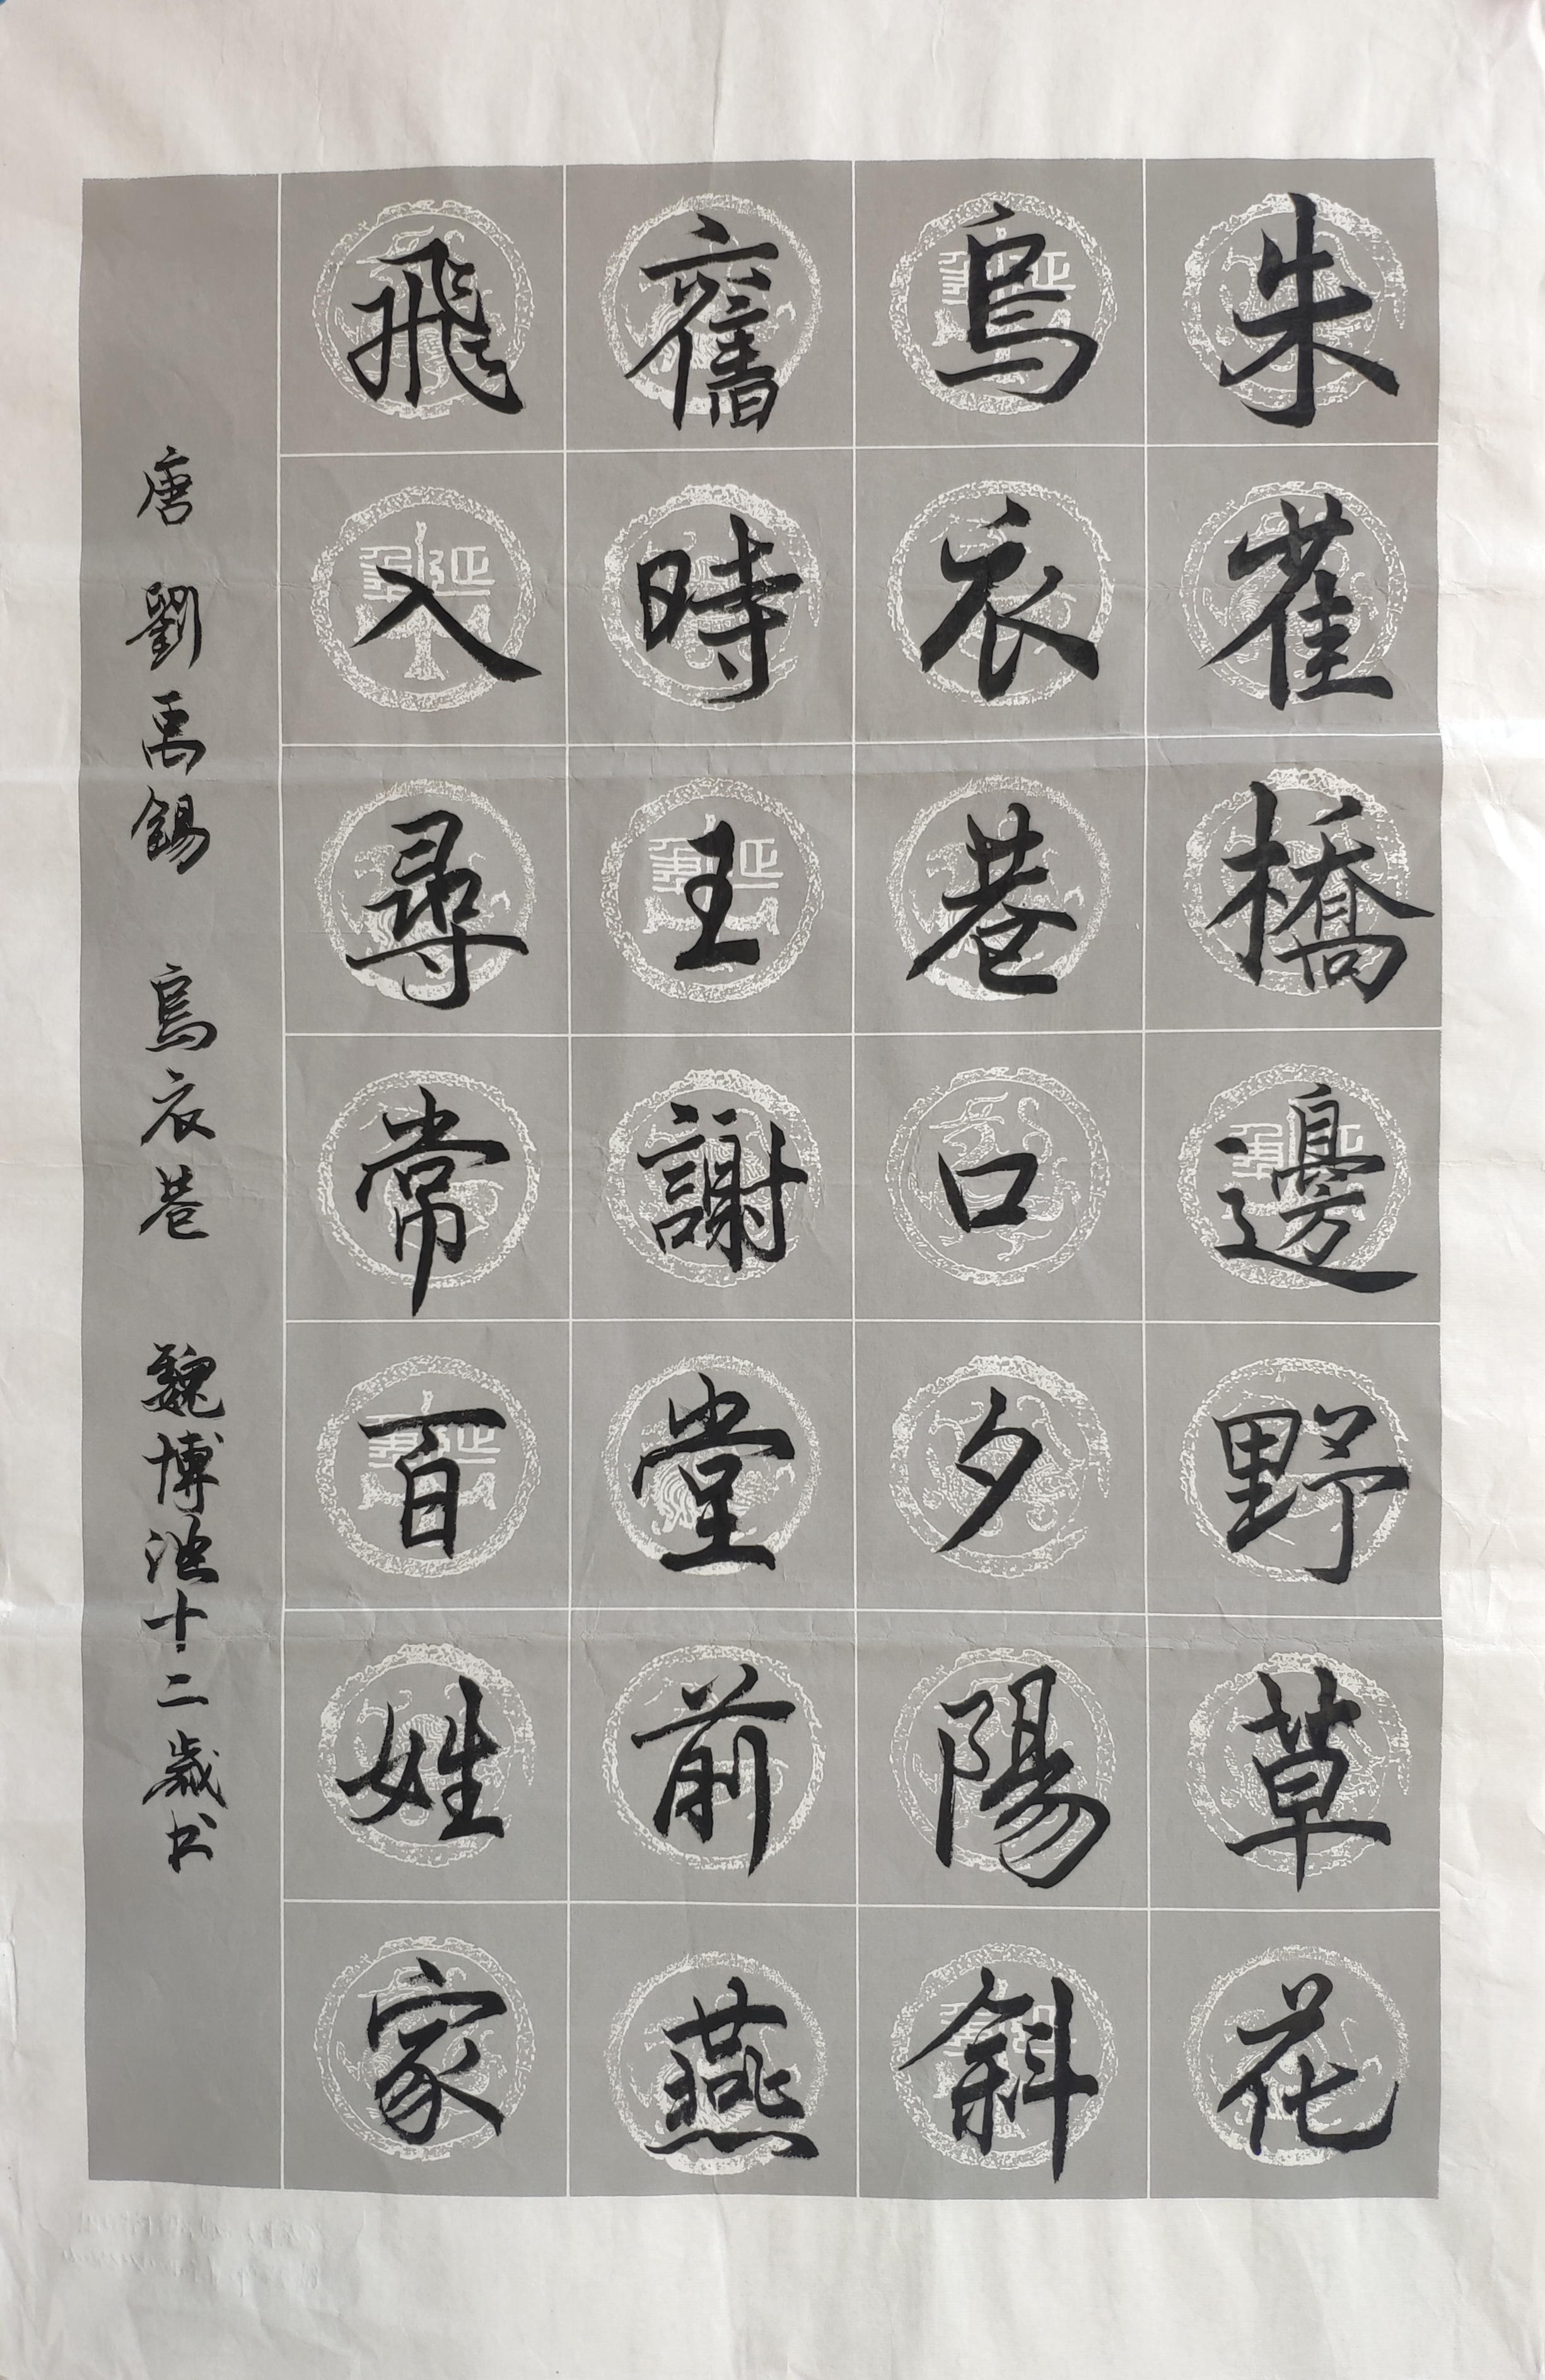 朱雀橋邊野草花
烏衣巷口夕陽斜
舊時王謝堂前燕
飛入尋常百姓家
唐 劉禹錫 烏衣巷 魏博十二歲书